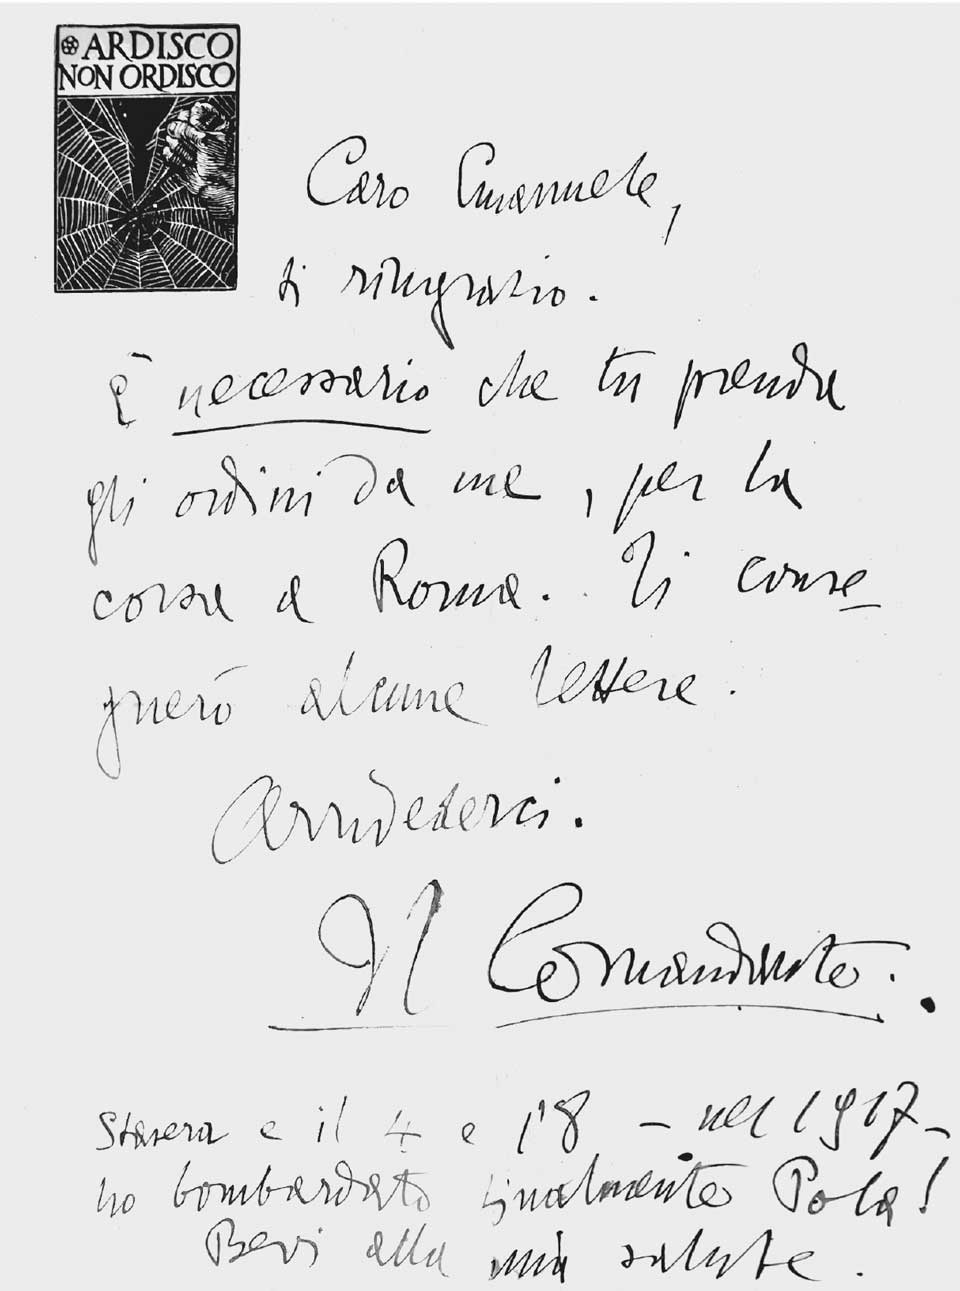 ARDISCO
NON ORDISCO
Caro Emanuele,
ti ringrazio.
È necessario che tu prenda
gli ordini da me, per la
corsa a Roma. Ti conse
gnerò alcune lettere.
Arrivederci.
Il Comandante.
Stasera e il 4 e l'8 – nel 1917 –
ho bombardato finalmente Pola!
Bevi alla mia salute.